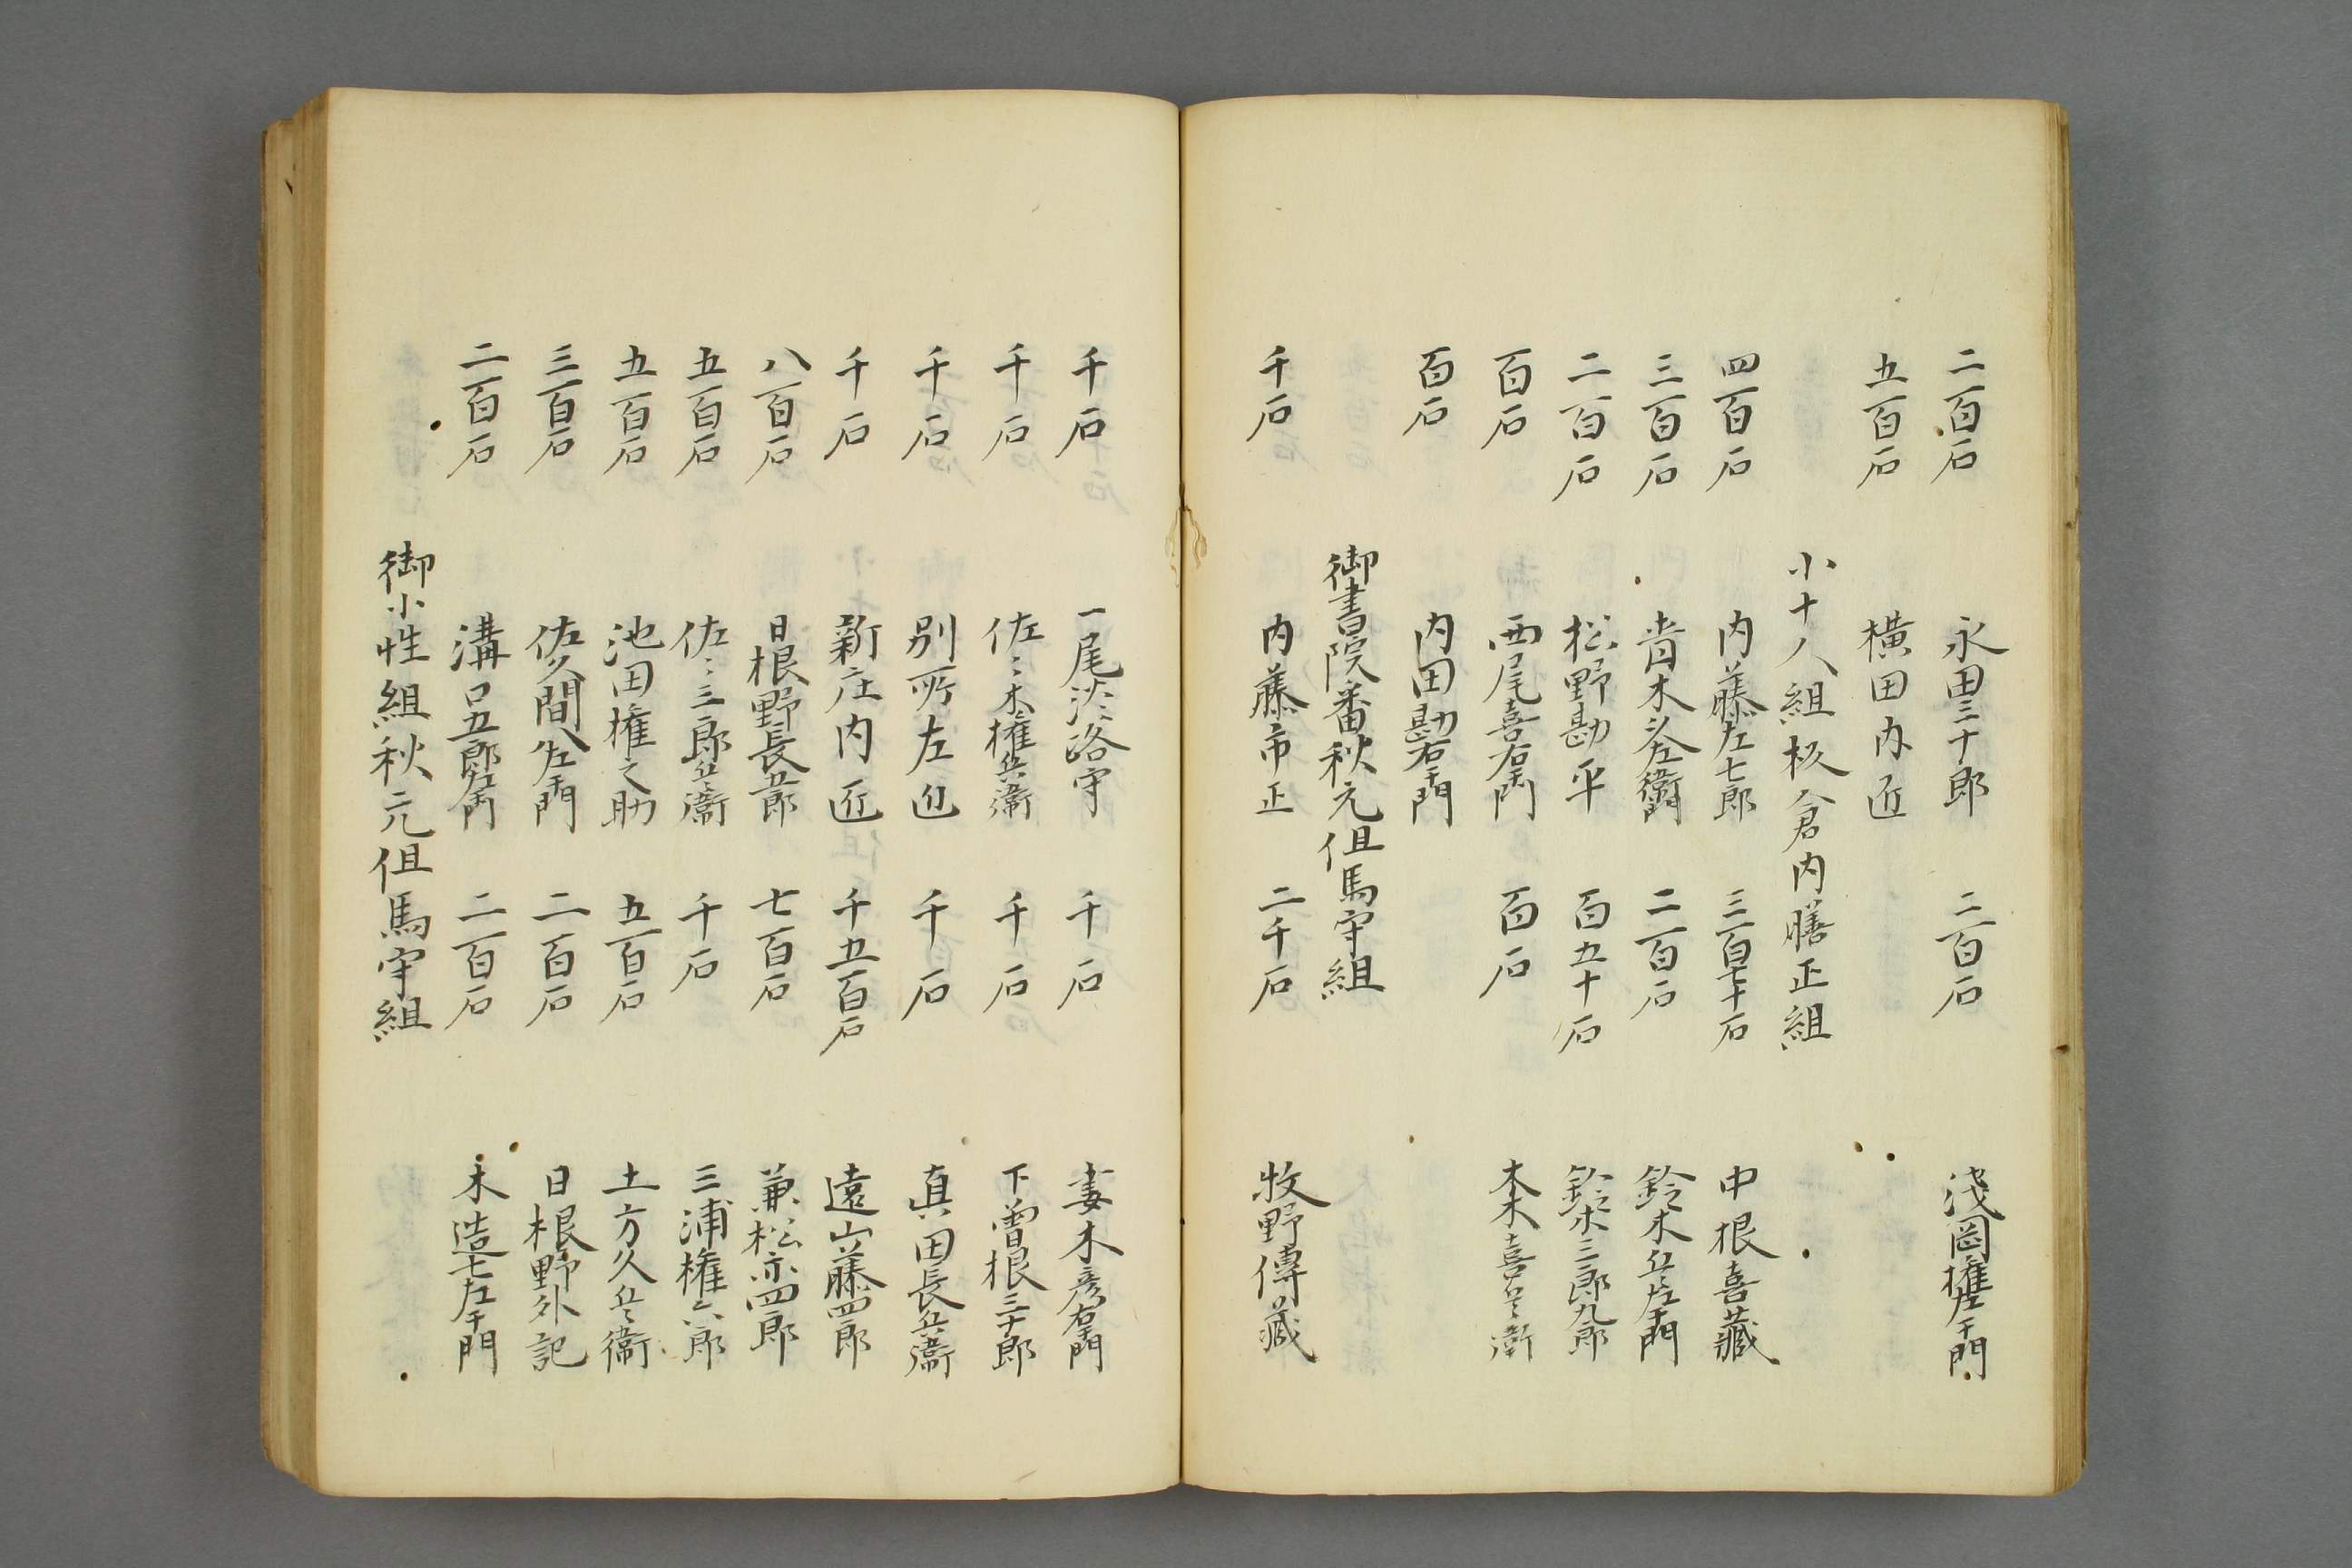 二百石 永田三十郎 二百石 淺岡権左衛門
五百石 横田内匠
小十人組板倉内膳正組
四百石 内藤左七郎 三百七十石 中根喜藏
三百石 青木与左衛門 二百石 鈴木五左衛門
二百石 松野勘平 百五十石 鈴木三郎九郎
百石 西尾喜右衛門 百石 木喜兵衛
百石 内田勘右衛門
御書院番秋元但馬守組
千石 内藤市正 二千石 牧野傳藏
千石 一尾淡路守 千石 妻木彦右衛門
千石 佐々木権兵衛 千石 下曽根三十郎
千石 別所左近 千石 真田長兵衛
千石 新庄内匠 千五百石 遠山藤四郎
八百石 日根野長五郎 七百石 兼松亦四郎
五百石 佐々三郎兵衛 千石 三浦権六郎
五百石 池田権之助 五百石 土方久兵衛
三百石 佐久間八左衛門 二百石 日根野外記
二百石 溝口五郎左衛門 二百石 木造七左衛門
御小性組秋元但馬守組